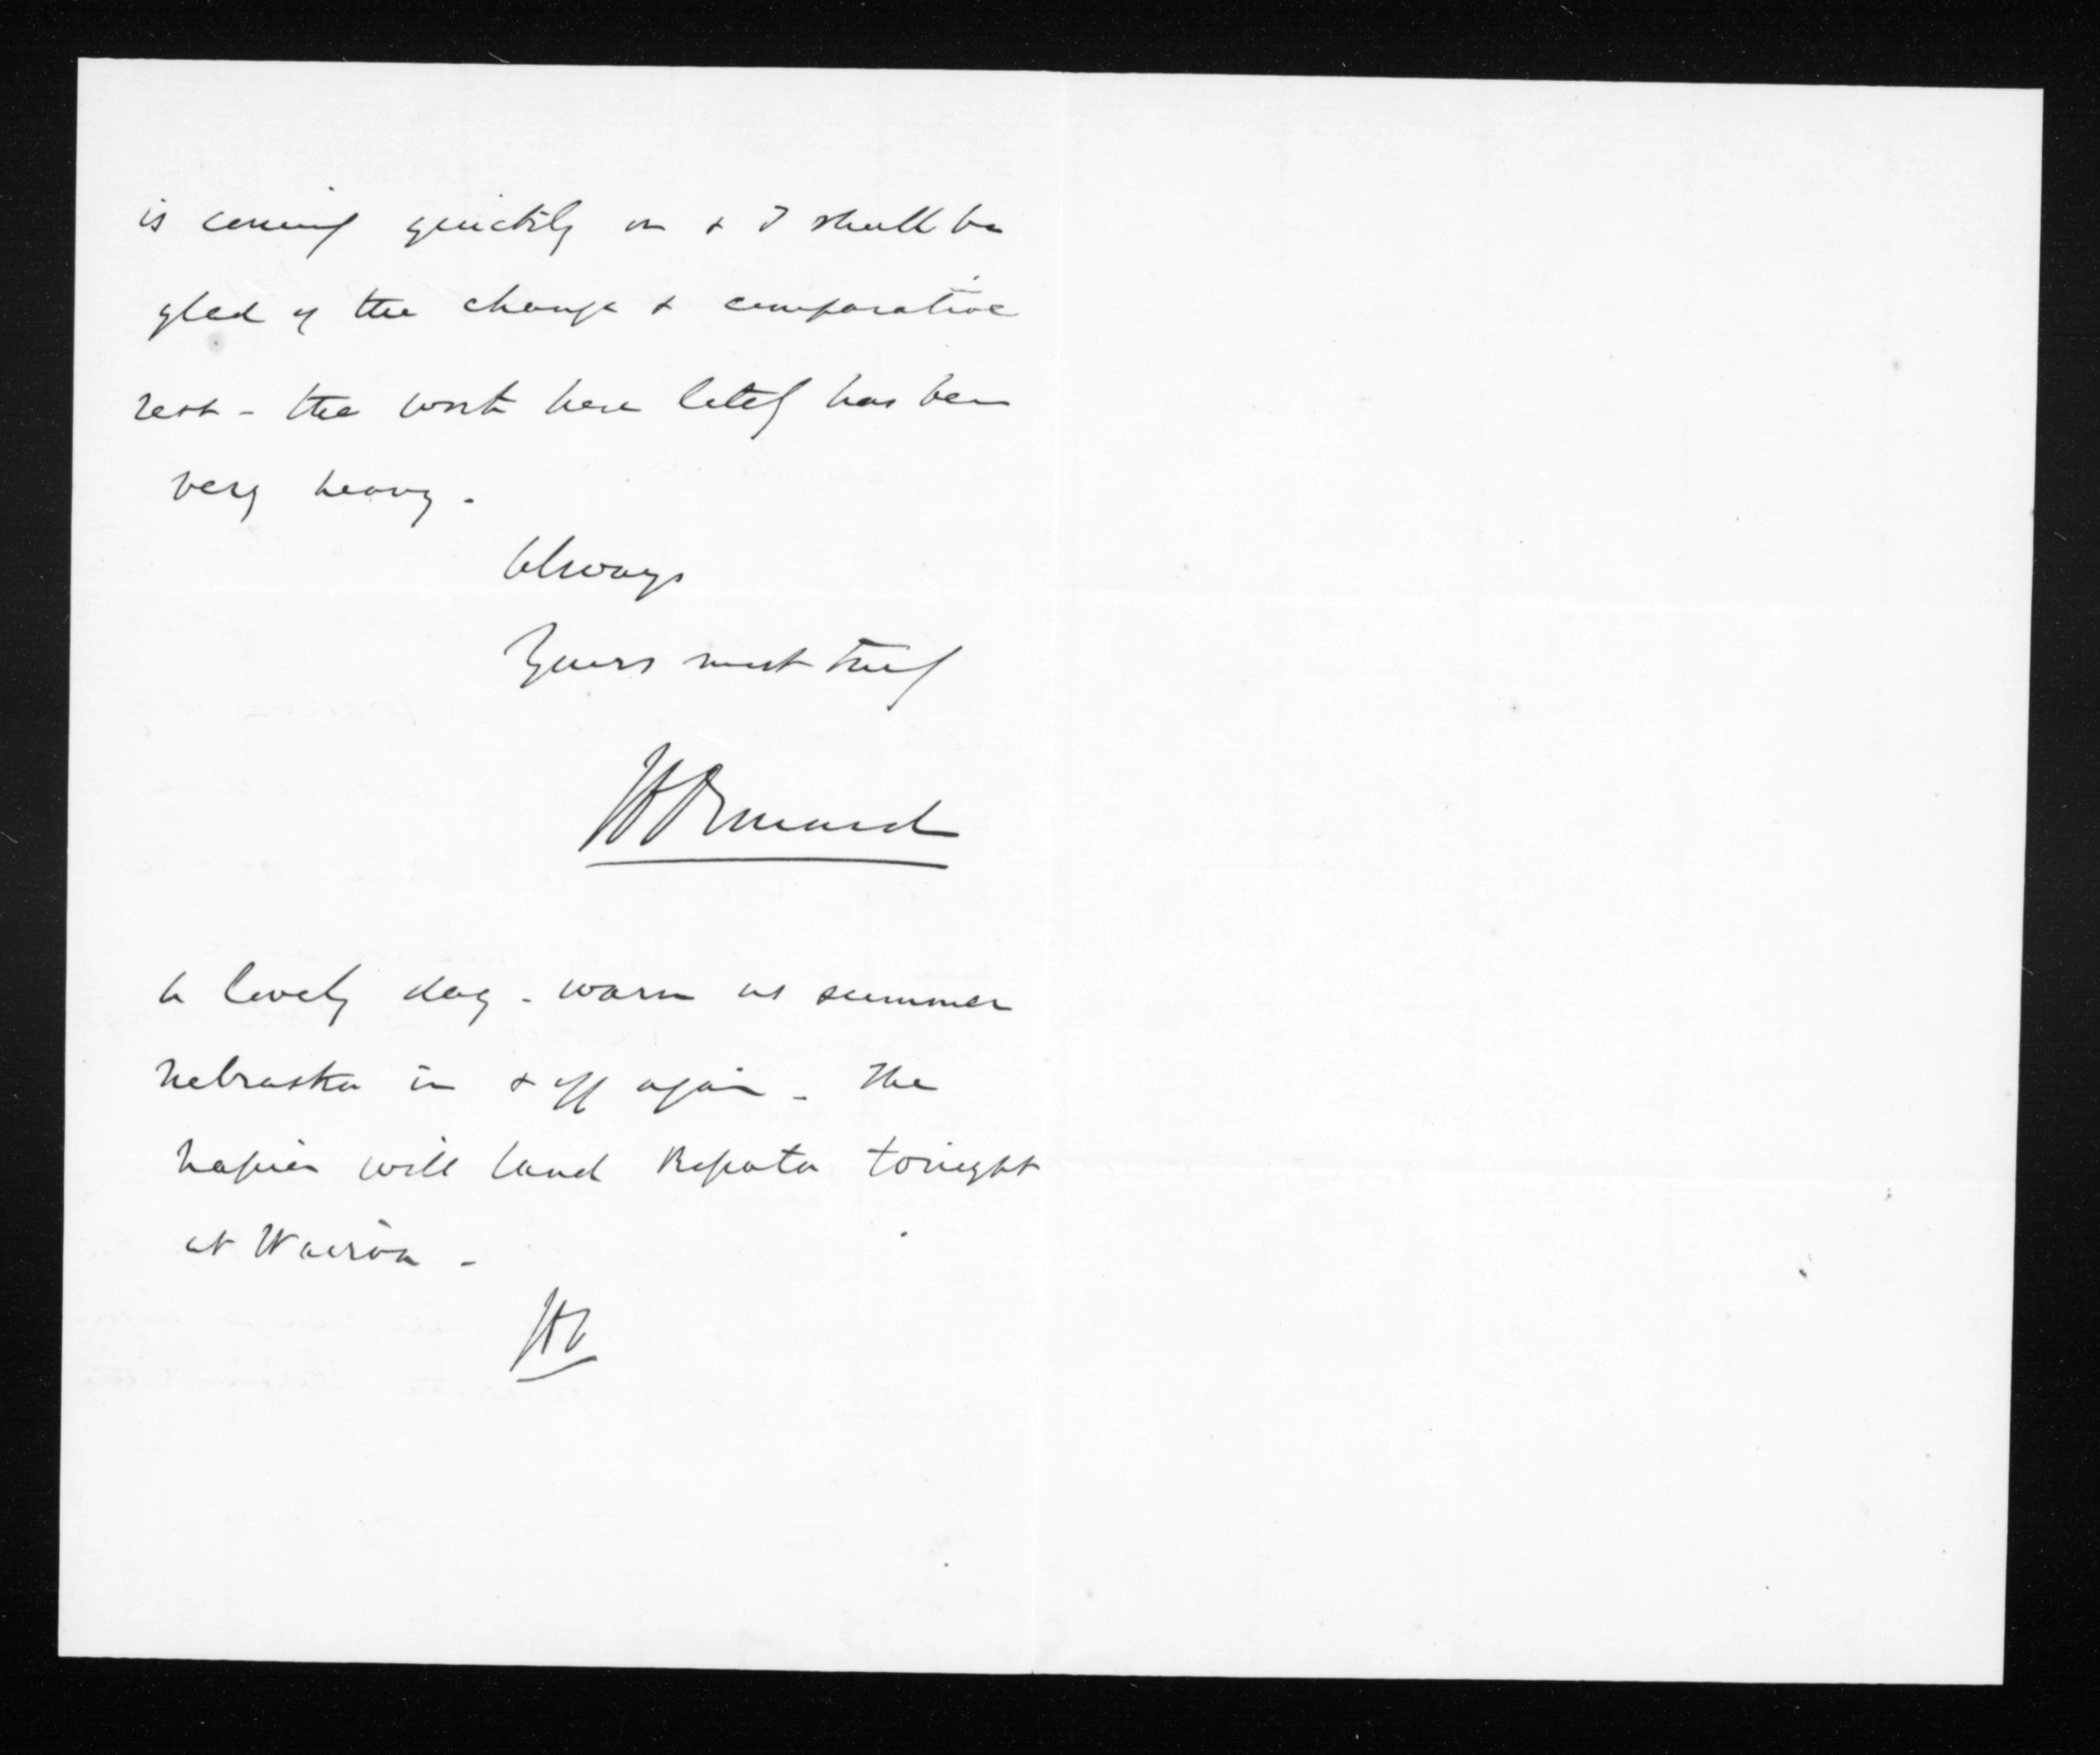 is coming quickly on & I shall be
glad of the change & comparative
rest - the work here lately has been
very heavy -
Always
Yours most truly
JD Ormond
A lovely day - warm as summer
Nebraska in & off again - The
Napier will land Ropata tonight
at Wairoa -
JDO